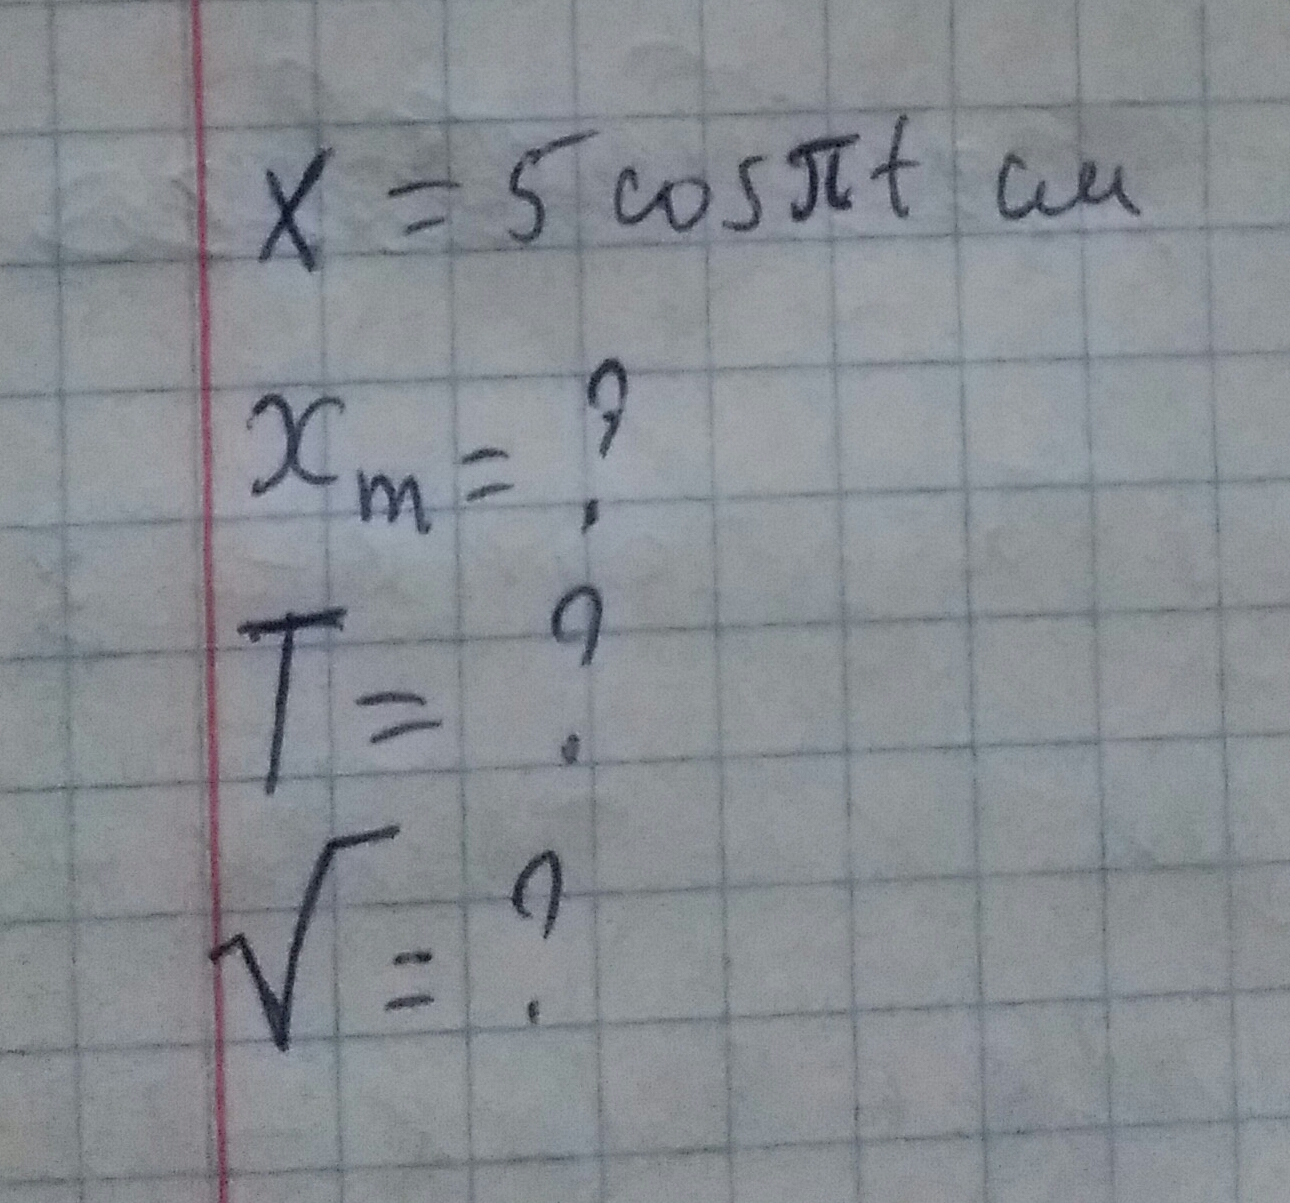 x = 5 cosπt см
x m = ?
T = ?
√ = ?